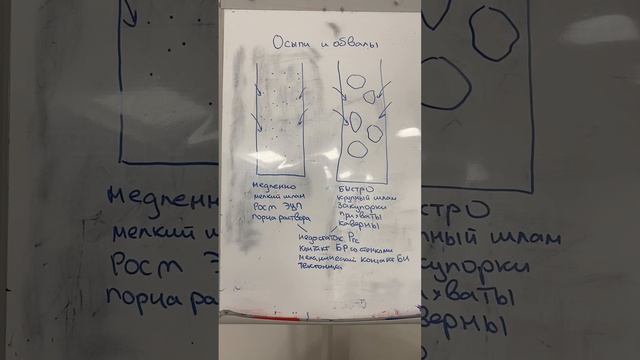 Осыпи и обвалы
медленно
мелкий шлам
Рост ЭЦП
порча раствора
быстро
крупный шлам
Закупорки
прихваты
каверны
недостаток Pгс
контакт БР со стенками
механический контакт БИ
тектоника